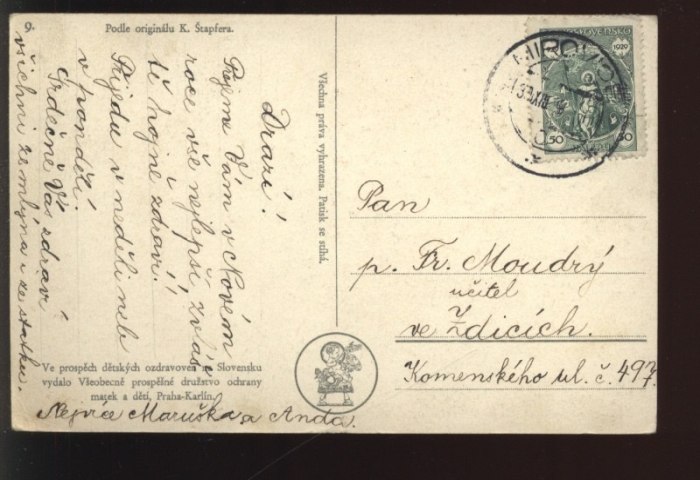 9.
Podle originálu K. Štapfera.
Drazí!
Přejeme Vám v Novém
roce vše nejlepší, zvláš
tě hojně zdraví!
Přijedu v neděli neb
v pondělí.
Srdečně Vás zdraví
všichni ze mlýna i ze statku.
Nejvíce Maruška a Anda.
Ve prospěch dětských ozdravoven na Slovensku
vydalo Všeobecně prospěšné družstvo ochrany
matek a dětí, Praha-Karlín.
Všechna práva vyhrazena. Patisk se stíhá.
1929
50 50
MIROVICE
Pan
p. Fr. Moudrý
učitel
ve Zdicích.
Komenského ul. č. 497.